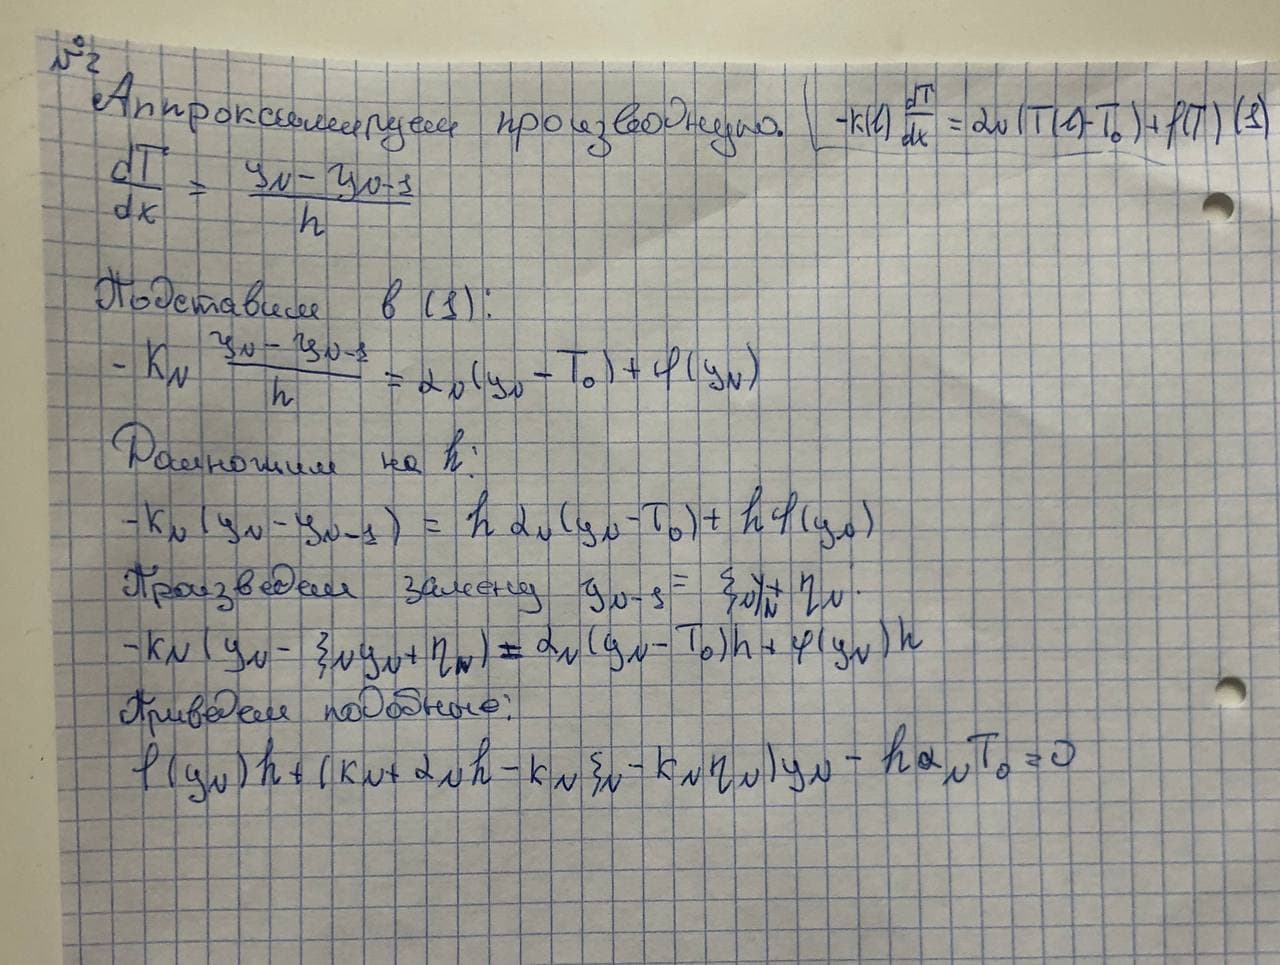 №2
Аппроксимируем производную. -k(l) dT/dx = α_N (T(l)-T₀) + φ(T) (1)
dT/dx = (y_N - y_N-1)/h
Подставим в (1):
-k_N (y_N - y_N-1)/h = α_N (y_N - T₀) + φ(y_N)
Домножим на h:
-k_N (y_N - y_N-1) = h α_N (y_N - T₀) + h φ(y_N)
Произведем замену y_N-1 = ξ_N y_N + η_N.
-k_N (y_N - ξ_N y_N + η_N) = α_N (y_N - T₀)h + φ(y_N)h
Приведем подобные:
φ(y_N)h + (k_N + α_N h - k_N ξ_N - k_N η_N) y_N - h α_N T₀ = 0